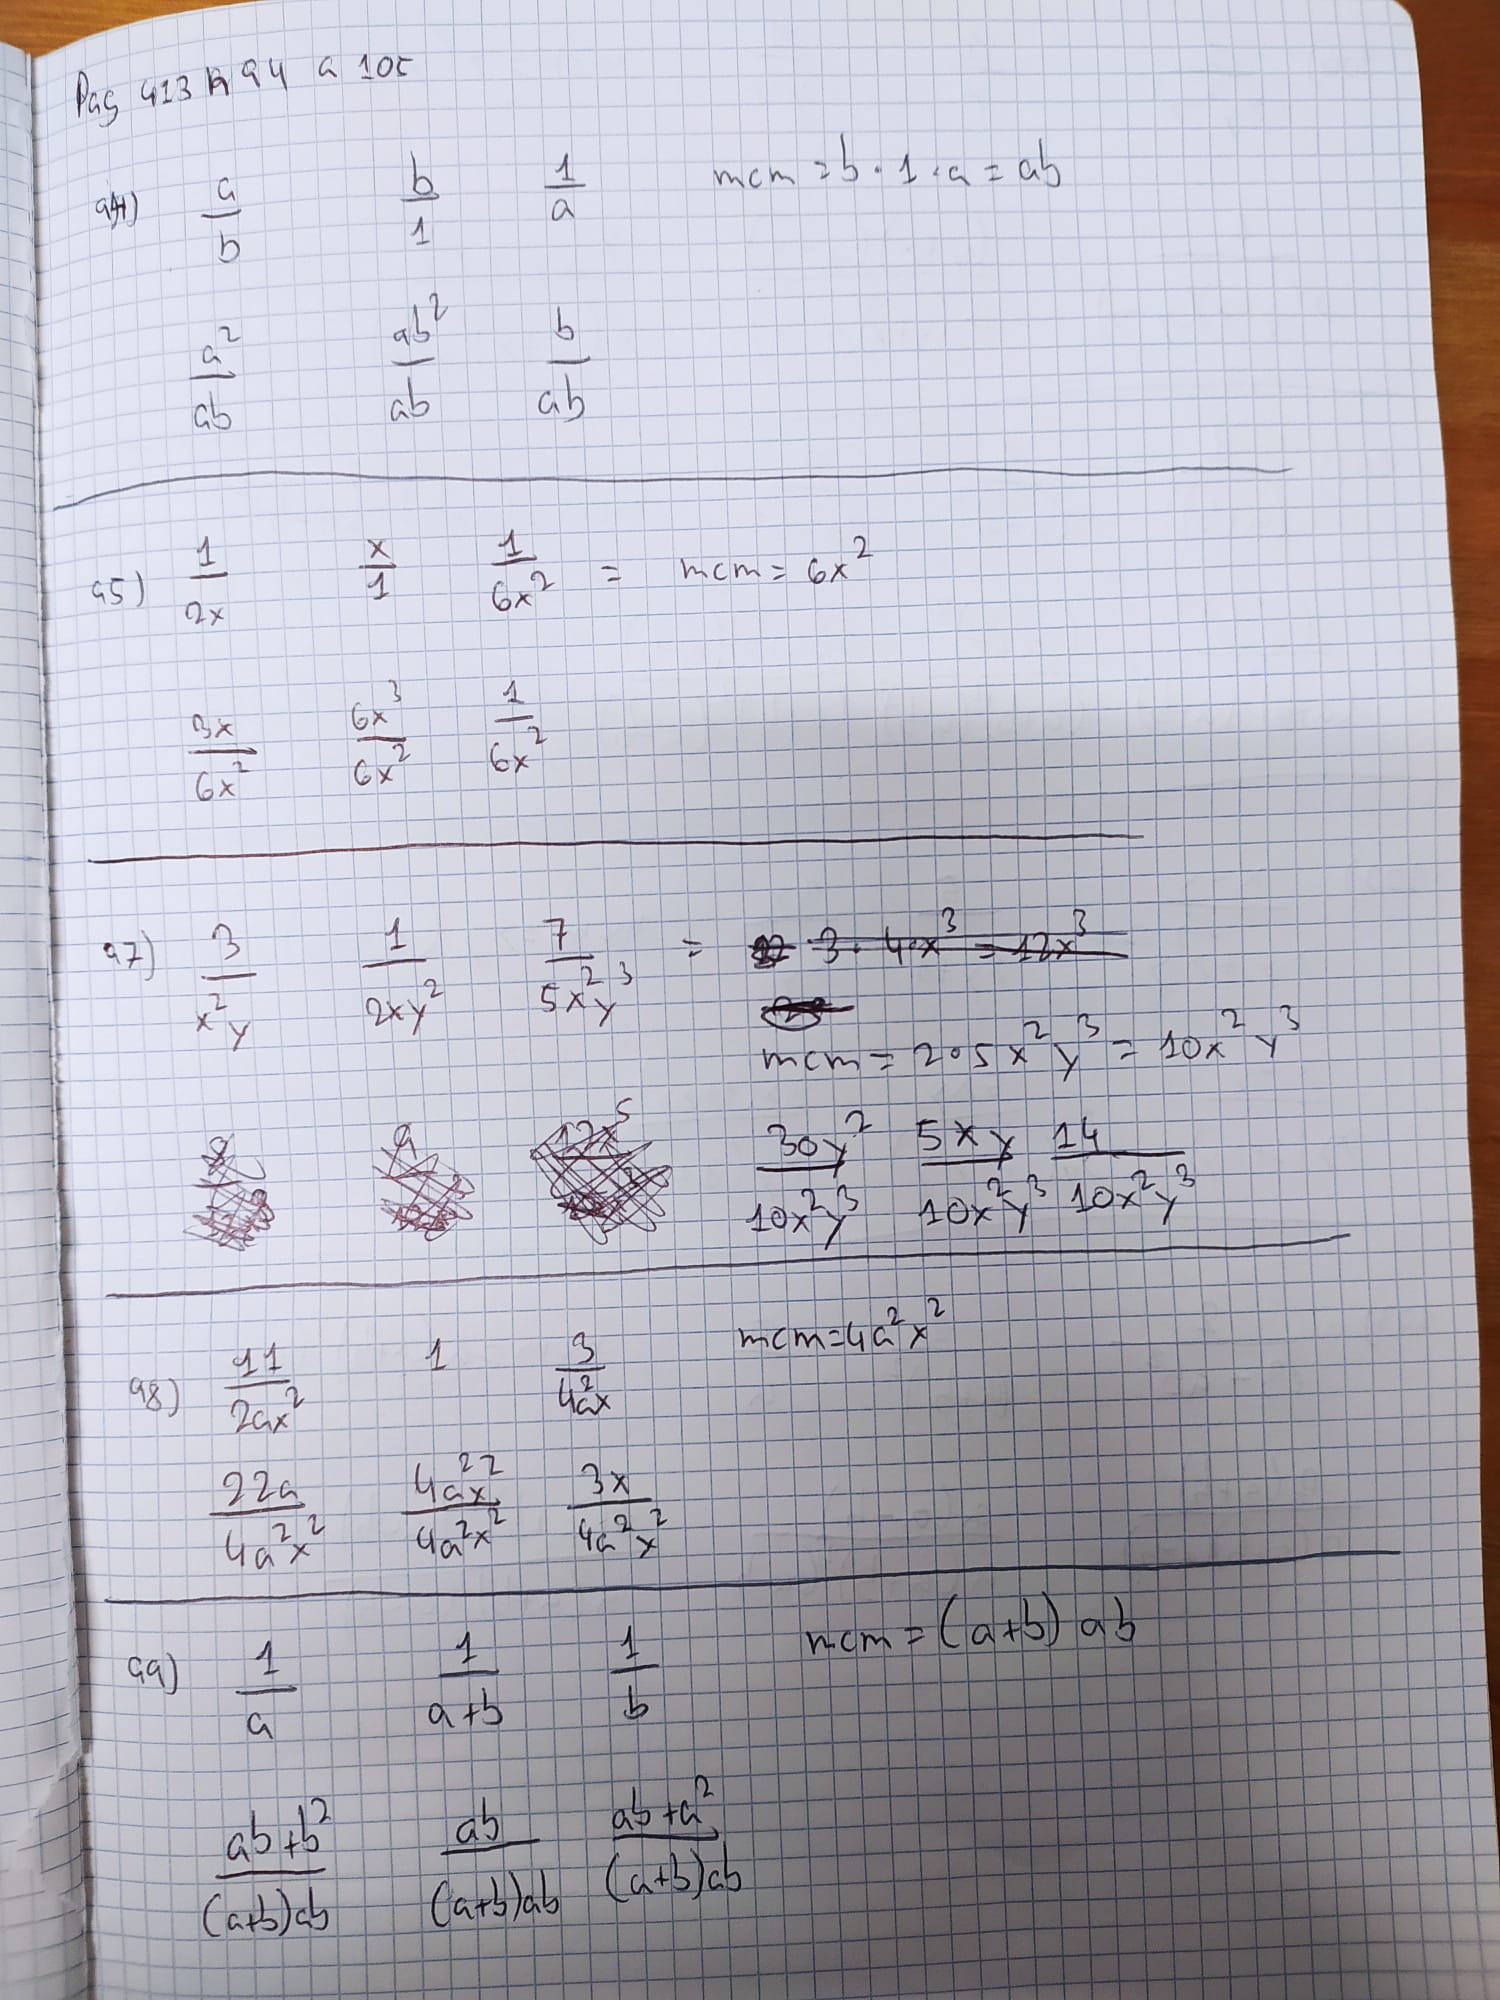 Pag 413 n 94 a 105
94) a/b b/1 1/a mcm = b · 1 · a = ab
a²/ab ab²/ab b/ab
95) 1/2x x/1 1/6x² = mcm = 6x²
3x/6x² 6x³/6x² 1/6x²
97) 3/x²y 1/2xy² 7/5x²y³ = 3 · 4x³ = 12x³
mcm = 2·5x²y³ = 10x²y³
30y²/10x²y³ 5xy/10x²y³ 14/10x²y³
98) 11/2ax² 1 3/4a²x mcm = 4a²x²
22a/4a²x² 4a²x²/4a²x² 3x/4a²x²
99) 1/a 1/a+b 1/b mcm = (a+b) ab
ab+b²/(a+b)ab ab/(a+b)ab ab+a²/(a+b)ab